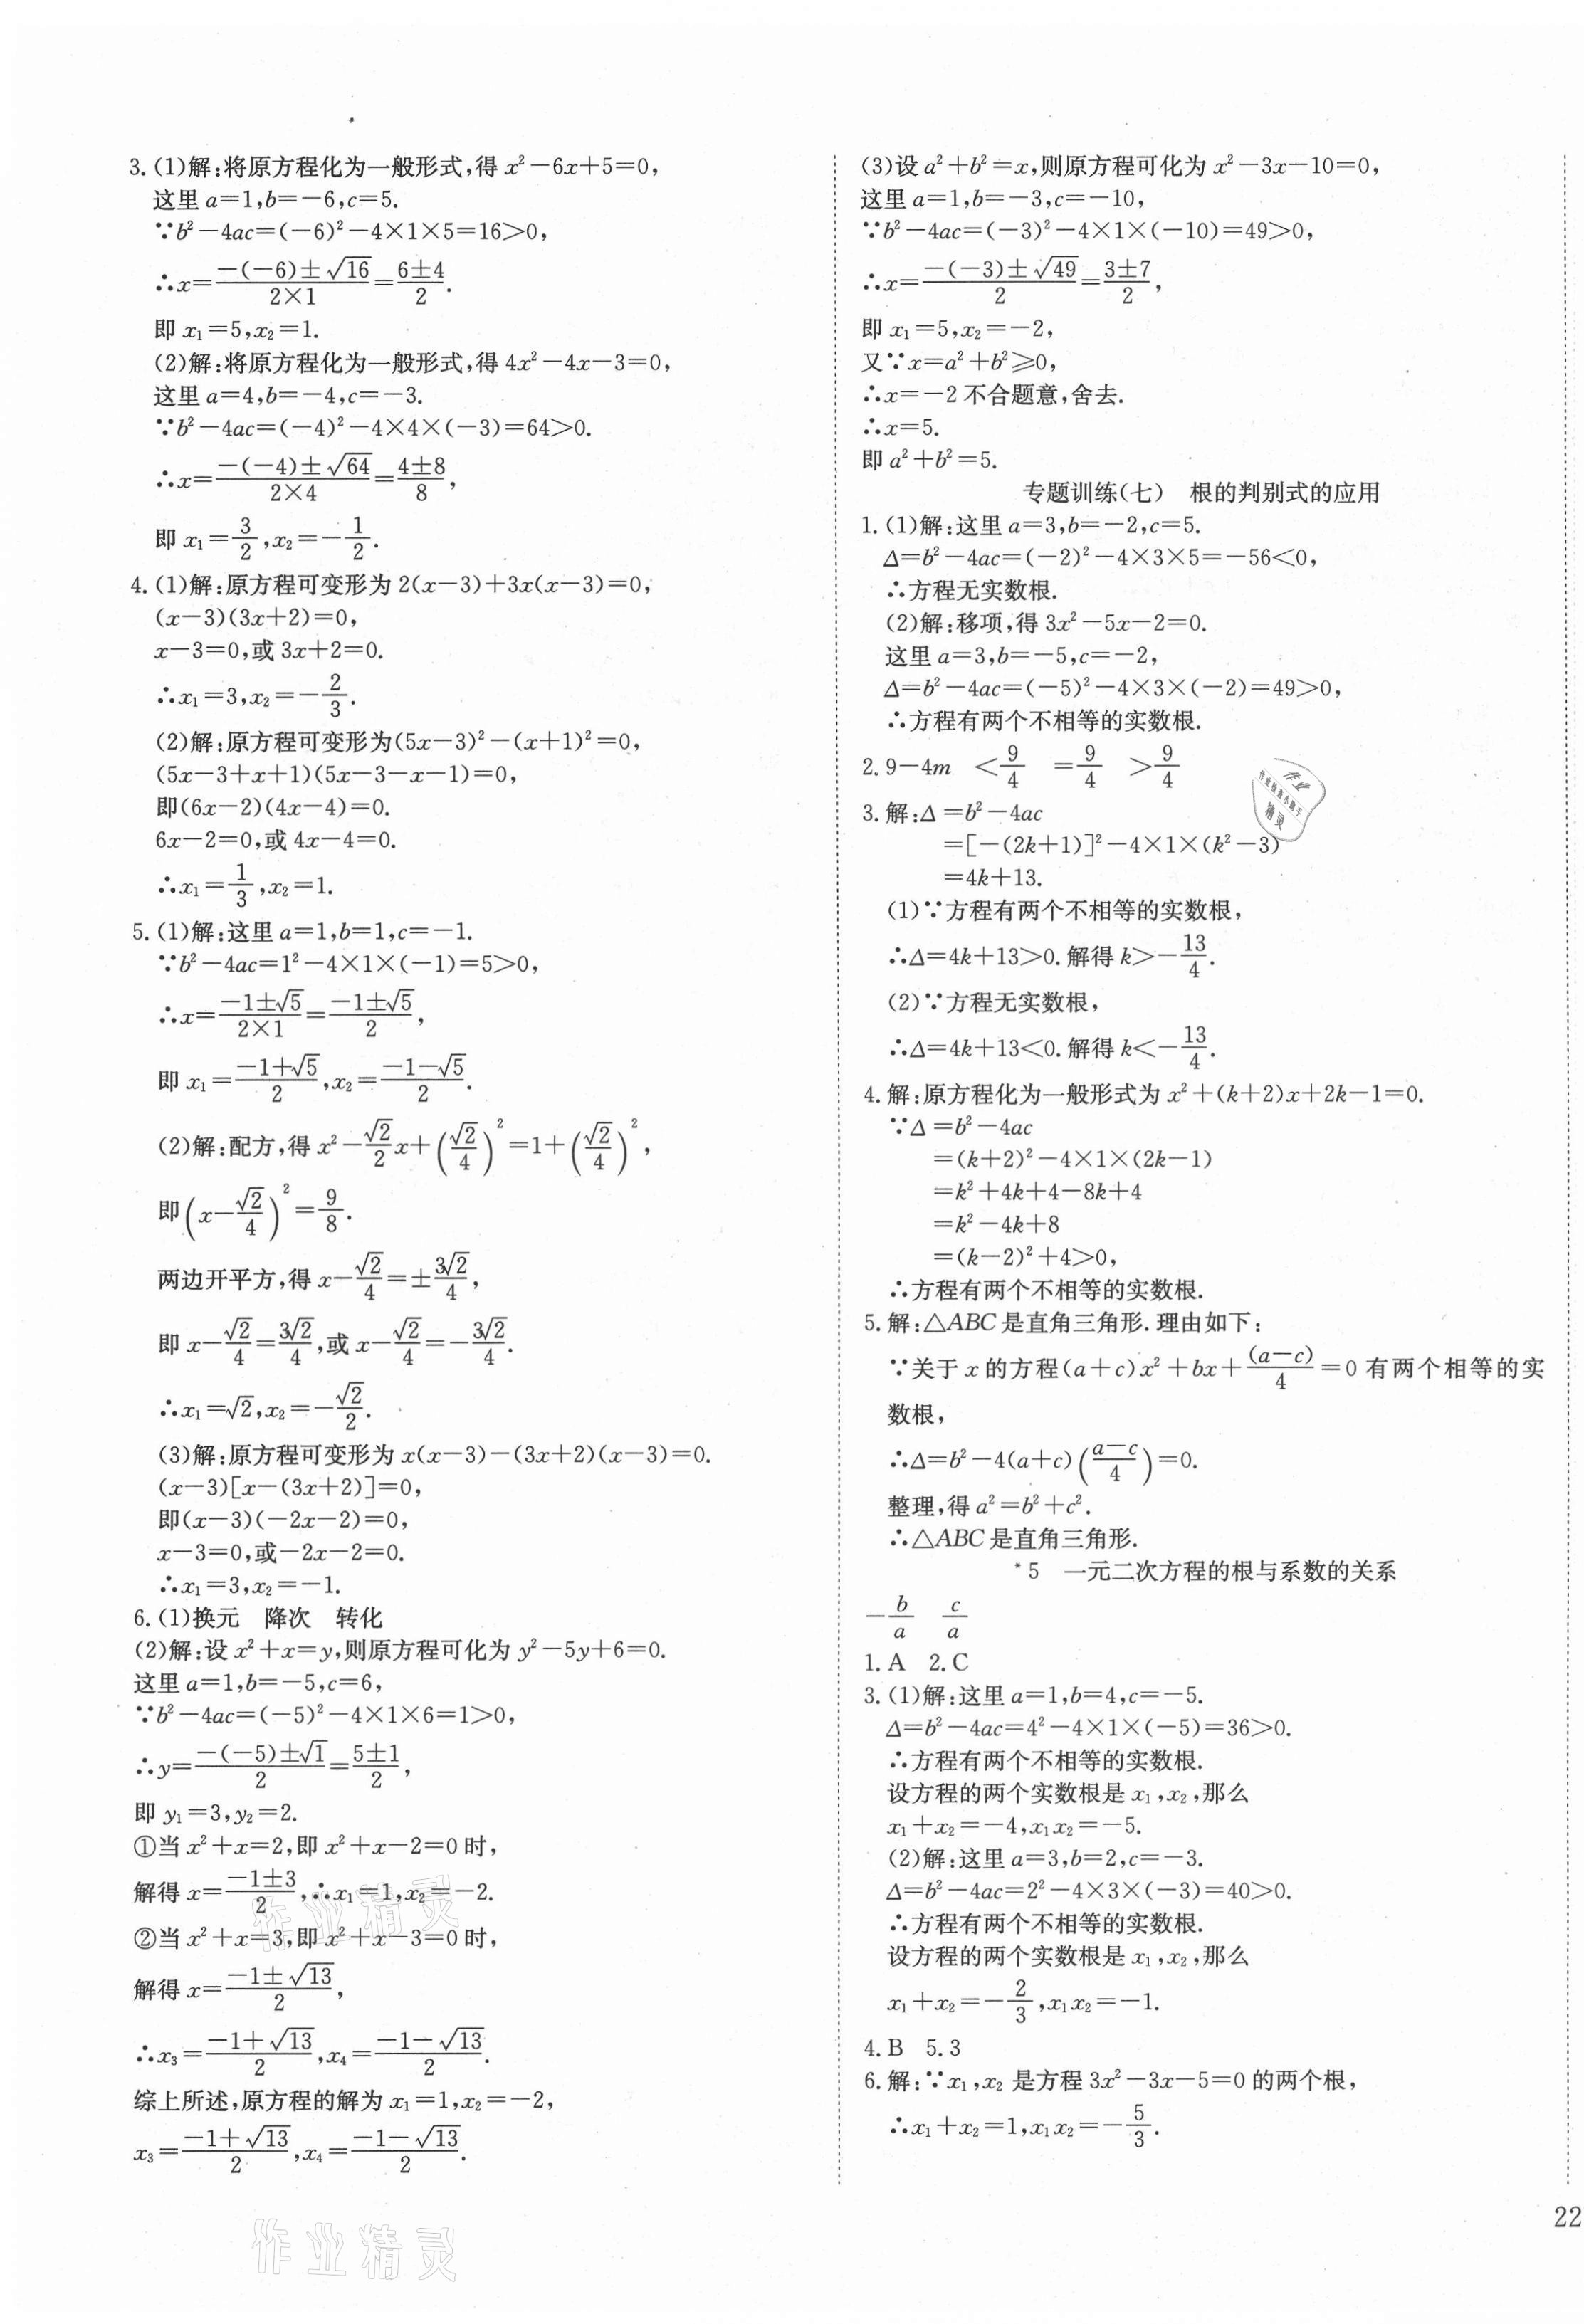 3.(1)解:将原方程化为一般形式,得 x²－6x＋5＝0,
这里 a＝1,b＝－6,c＝5.
∵b²－4ac＝(－6)²－4×1×5＝16＞0,
∴x＝\frac{－(－6)±√16}{2×1}＝\frac{6±4}{2}.
即 x₁＝5,x₂＝1.
(2)解:将原方程化为一般形式,得 4x²－4x－3＝0,
这里 a＝4,b＝－4,c＝－3.
∵b²－4ac＝(－4)²－4×4×(－3)＝64＞0.
∴x＝\frac{－(－4)±√64}{2×4}＝\frac{4±8}{8},
即 x₁＝\frac{3}{2},x₂＝－\frac{1}{2}.
4.(1)解:原方程可变形为 2(x－3)＋3x(x－3)＝0,
(x－3)(3x＋2)＝0,
x－3＝0,或 3x＋2＝0.
∴x₁＝3,x₂＝－\frac{2}{3}.
(2)解:原方程可变形为(5x－3)²－(x＋1)²＝0,
(5x－3＋x＋1)(5x－3－x－1)＝0,
即(6x－2)(4x－4)＝0.
6x－2＝0,或 4x－4＝0.
∴x₁＝\frac{1}{3},x₂＝1.
5.(1)解:这里 a＝1,b＝1,c＝－1.
∵b²－4ac＝1²－4×1×(－1)＝5＞0,
∴x＝\frac{－1±√5}{2×1}＝\frac{－1±√5}{2},
即 x₁＝\frac{－1＋√5}{2},x₂＝\frac{－1－√5}{2}.
(2)解:配方,得 x²－\frac{√2}{2}x＋(\frac{√2}{4})²＝1＋(\frac{√2}{4})²,
即(x－\frac{√2}{4})²＝\frac{9}{8}.
两边开平方,得 x－\frac{√2}{4}＝±\frac{3√2}{4},
即 x－\frac{√2}{4}＝\frac{3√2}{4},或 x－\frac{√2}{4}＝－\frac{3√2}{4}.
∴x₁＝√2,x₂＝－\frac{√2}{2}.
(3)解:原方程可变形为 x(x－3)－(3x＋2)(x－3)＝0.
(x－3)[x－(3x＋2)]＝0,
即(x－3)(－2x－2)＝0,
x－3＝0,或－2x－2＝0.
∴x₁＝3,x₂＝－1.
6.(1)换元 降次 转化
(2)解:设 x²＋x＝y,则原方程可化为 y²－5y＋6＝0.
这里 a＝1,b＝－5,c＝6,
∵b²－4ac＝(－5)²－4×1×6＝1＞0,
∴y＝\frac{－(－5)±√1}{2}＝\frac{5±1}{2},
即 y₁＝3,y₂＝2.
①当 x²＋x＝2,即 x²＋x－2＝0 时,
解得 x＝\frac{－1±3}{2},∴x₁＝1,x₂＝－2.
②当 x²＋x＝3,即 x²＋x－3＝0 时,
解得 x＝\frac{－1±√13}{2},
∴x₃＝\frac{－1＋√13}{2},x₄＝\frac{－1－√13}{2}.
综上所述,原方程的解为 x₁＝1,x₂＝－2,
x₃＝\frac{－1＋√13}{2},x₄＝\frac{－1－√13}{2}.
作业精灵
作业精灵
(3)设 a²＋b²＝x,则原方程可化为 x²－3x－10＝0,
这里 a＝1,b＝－3,c＝－10,
∵b²－4ac＝(－3)²－4×1×(－10)＝49＞0,
∴x＝\frac{－(－3)±√49}{2}＝\frac{3±7}{2},
即 x₁＝5,x₂＝－2,
又∵x＝a²＋b²≥0,
∴x＝－2 不合题意,舍去.
∴x＝5.
即 a²＋b²＝5.
专题训练(七) 根的判别式的应用
1.(1)解:这里 a＝3,b＝－2,c＝5.
Δ＝b²－4ac＝(－2)²－4×3×5＝－56＜0,
∴方程无实数根.
(2)解:移项,得 3x²－5x－2＝0.
这里 a＝3,b＝－5,c＝－2,
Δ＝b²－4ac＝(－5)²－4×3×(－2)＝49＞0,
∴方程有两个不相等的实数根.
2.9－4m ＜\frac{9}{4} ＝\frac{9}{4} ＞\frac{9}{4}
3.解:Δ＝b²－4ac
＝[－(2k＋1)]²－4×1×(k²－3)
＝4k＋13.
(1)∵方程有两个不相等的实数根,
∴Δ＝4k＋13＞0.解得 k＞－\frac{13}{4}.
(2)∵方程无实数根,
∴Δ＝4k＋13＜0.解得 k＜－\frac{13}{4}.
4.解:原方程化为一般形式为 x²＋(k＋2)x＋2k－1＝0.
∵Δ＝b²－4ac
＝(k＋2)²－4×1×(2k－1)
＝k²＋4k＋4－8k＋4
＝k²－4k＋8
＝(k－2)²＋4＞0,
∴方程有两个不相等的实数根.
5.解:△ABC是直角三角形.理由如下:
∵关于 x 的方程(a＋c)x²＋bx＋\frac{(a－c)}{4}＝0 有两个相等的实
数根,
∴Δ＝b²－4(a＋c)(\frac{a－c}{4})＝0.
整理,得 a²＝b²＋c².
∴△ABC是直角三角形.
*5 一元二次方程的根与系数的关系
－\frac{b}{a} \frac{c}{a}
1.A 2.C
3.(1)解:这里 a＝1,b＝4,c＝－5.
Δ＝b²－4ac＝4²－4×1×(－5)＝36＞0.
∴方程有两个不相等的实数根.
设方程的两个实数根是 x₁,x₂,那么
x₁＋x₂＝－4,x₁x₂＝－5.
(2)解:这里 a＝3,b＝2,c＝－3.
Δ＝b²－4ac＝2²－4×3×(－3)＝40＞0.
∴方程有两个不相等的实数根.
设方程的两个实数根是 x₁,x₂,那么
x₁＋x₂＝－\frac{2}{3},x₁x₂＝－1.
4.B 5.3
6.解:∵x₁,x₂ 是方程 3x²－3x－5＝0 的两个根,
∴x₁＋x₂＝1,x₁x₂＝－\frac{5}{3}.
作业
精灵
22